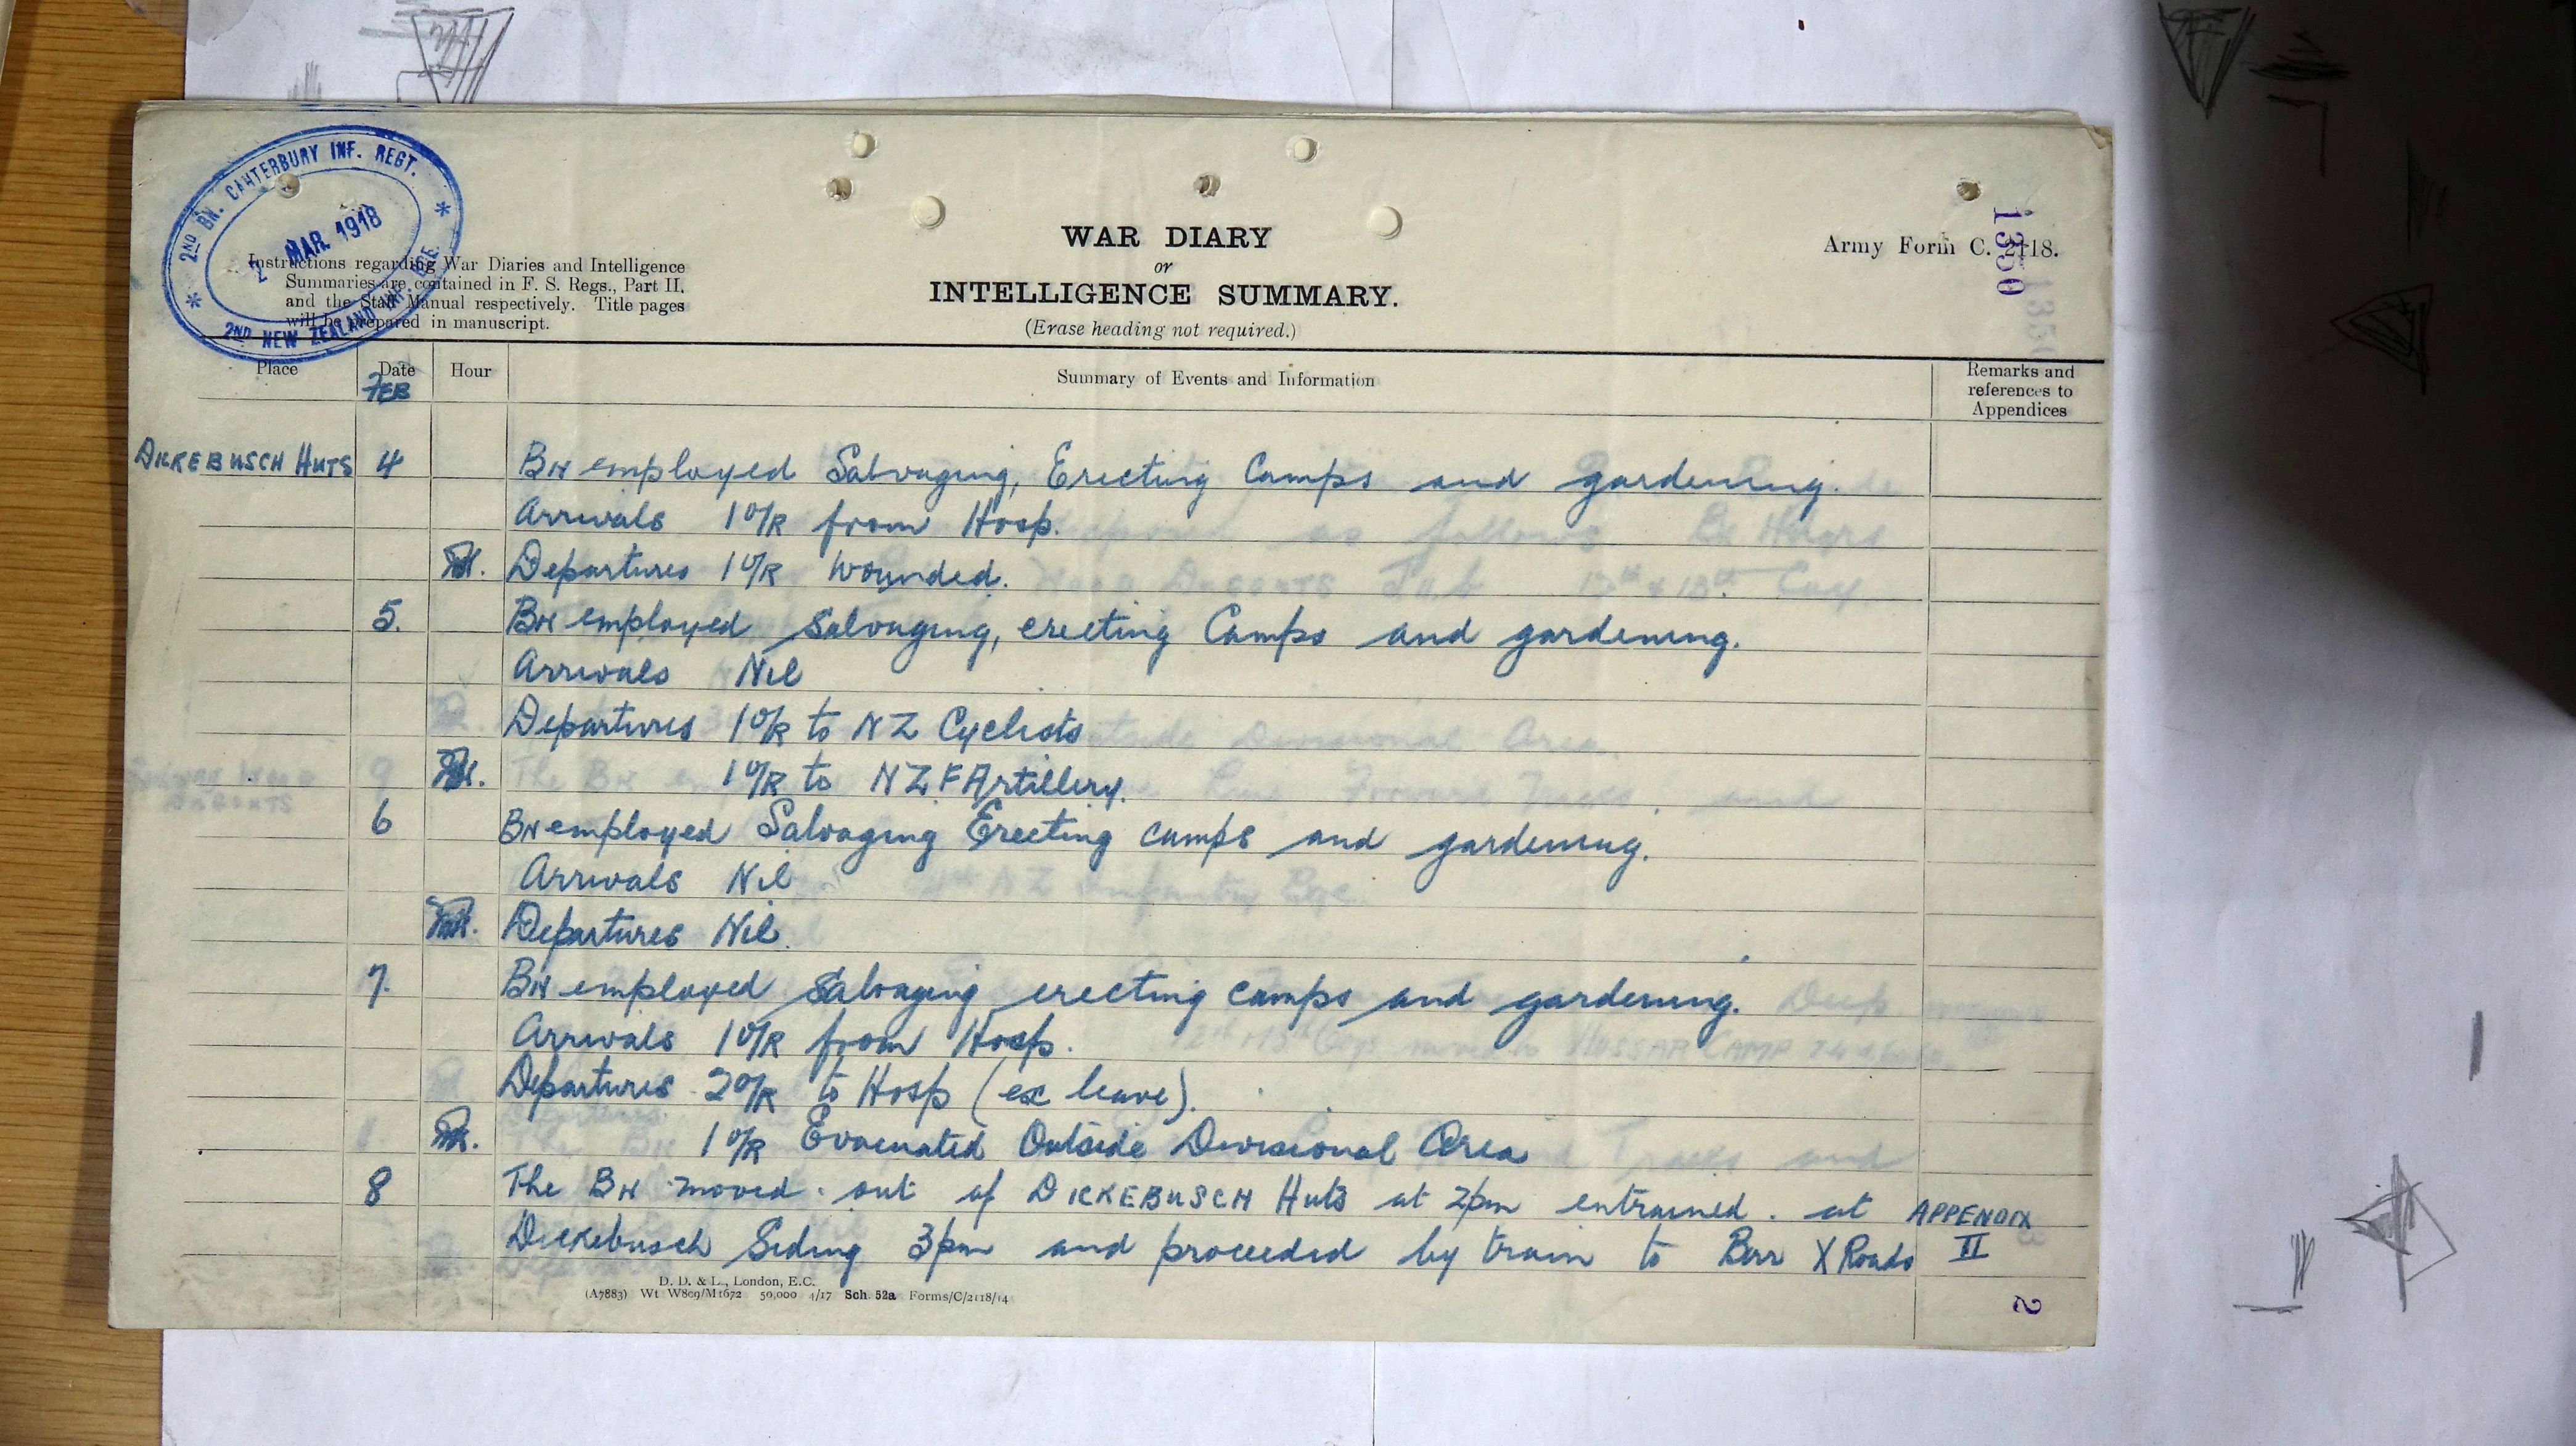 2ND BN. CANTERBURY INF. REGT.
2 MAR. 1918
2ND NEW ZEALAND INF. BDE.
Instructions regarding War Diaries and Intelligence
Summaries are contained in F. S. Regs., Part II,
and the Staff Manual respectively. Title pages
will be prepared in manuscript.
WAR DIARY
or
INTELLIGENCE SUMMARY.
(Erase heading not required.)
Army Form C. 2118.
1350
Place Date Hour Summary of Events and Information Remarks and references to Appendices
FEB
DICKEBUSCH HUTS 4 BN employed Salvaging, Erecting Camps and gardening.
Arrivals 1 O/R from Hosp.
Departures 1 O/R Wounded.
5. BN employed Salvaging, erecting Camps and gardening.
Arrivals Nil
Departures 1 O/R to NZ Cyclists
1 O/R to NZFArtillery.
6 BN employed Salvaging Erecting camps and gardening.
Arrivals Nil
Departures Nil.
7. BN employed Salvaging erecting camps and gardening.
Arrivals 1 O/R from Hosp.
Departures 2 O/R to Hosp (ex leave).
1 O/R Evacuated Outside Divisional Area
8 The BN moved out of DICKEBUSCH Huts at 2pm entrained at APPENDIX
Dickebusch Siding 3pm and proceeded by train to Birr X Roads II
D. D. & L., London, E.C.
(A7883) Wt W809/M1672 50,000 4/17 Sch. 52a Forms/C/2118/14
2